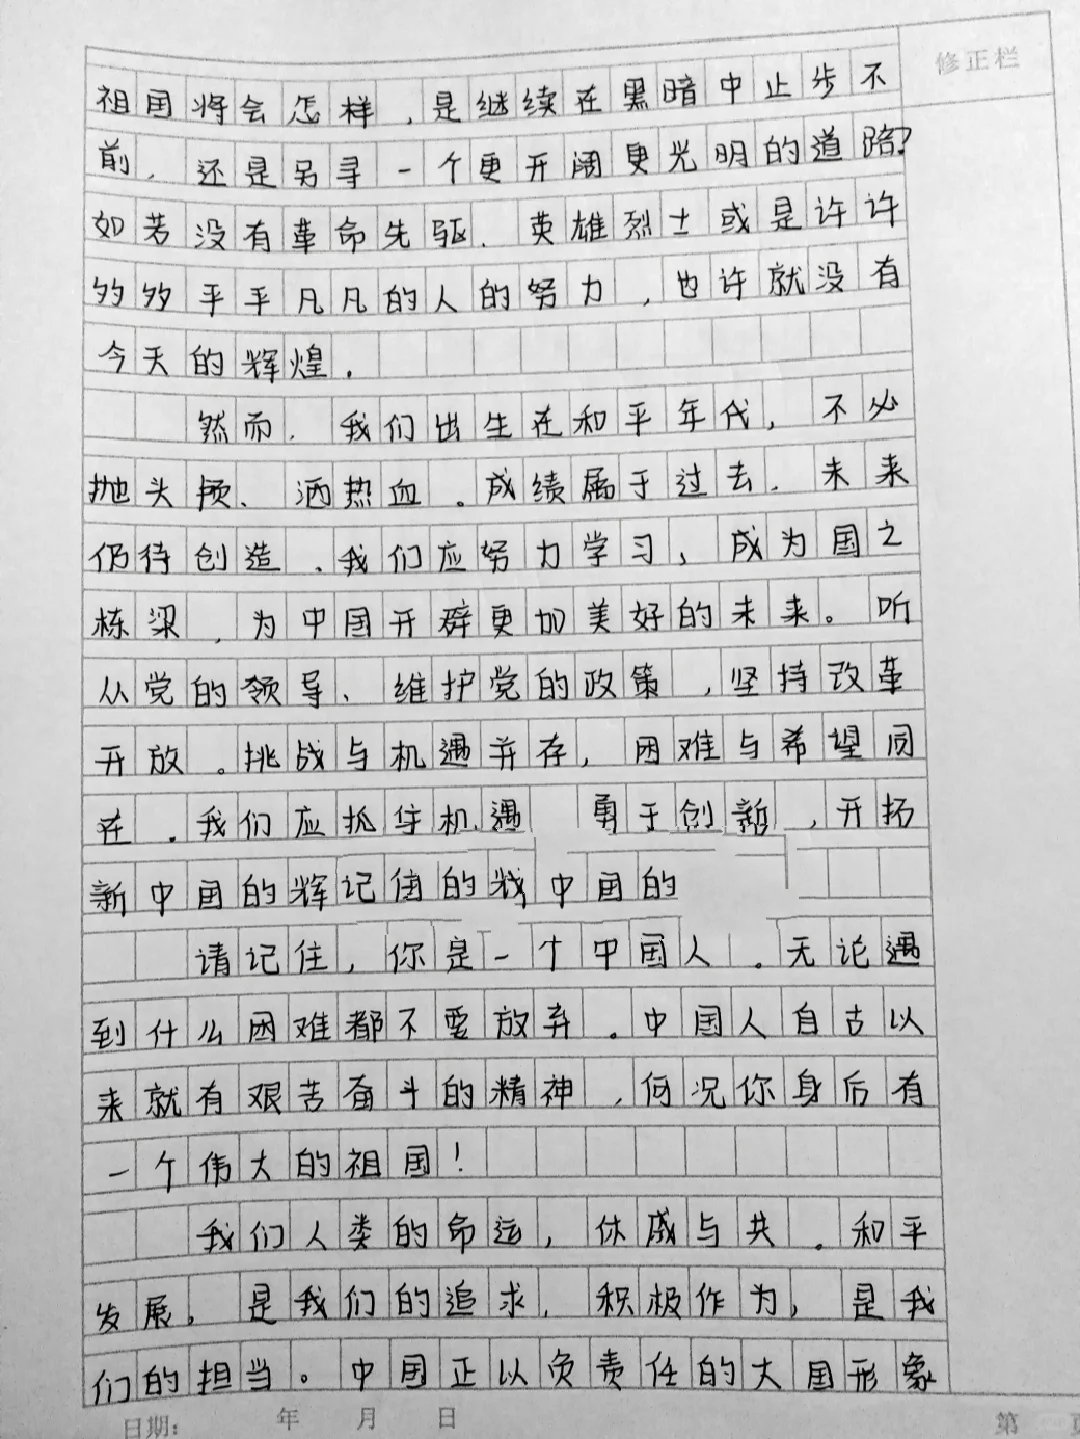 修正栏
祖国将会怎样,是继续在黑暗中止步不
前,还是另寻一个更开阔更光明的道路?
如若没有革命先驱、英雄烈士或是许许
多多平平凡凡的人的努力,也许就没有
今天的辉煌.
然而,我们出生在和平年代,不必
抛头颅、洒热血。成绩属于过去,未来
仍待创造.我们应努力学习,成为国之
栋梁,为中国开辟更加美好的未来。听
从党的领导、维护党的政策,坚持改革
开放。挑战与机遇并存,困难与希望同
在.我们应抓住机遇 勇于创新,开拓
新中国的辉记 的 中国的
请记住,你是一个中国人.无论遇
到什么困难都不要放弃.中国人自古以
来就有艰苦奋斗的精神,何况你身后有
一个伟大的祖国!
我们人类的命运,休戚与共.和平
发展,是我们的追求,积极作为,是我
们的担当。中国正以负责任的大国形象
日期: 年 月 日 第